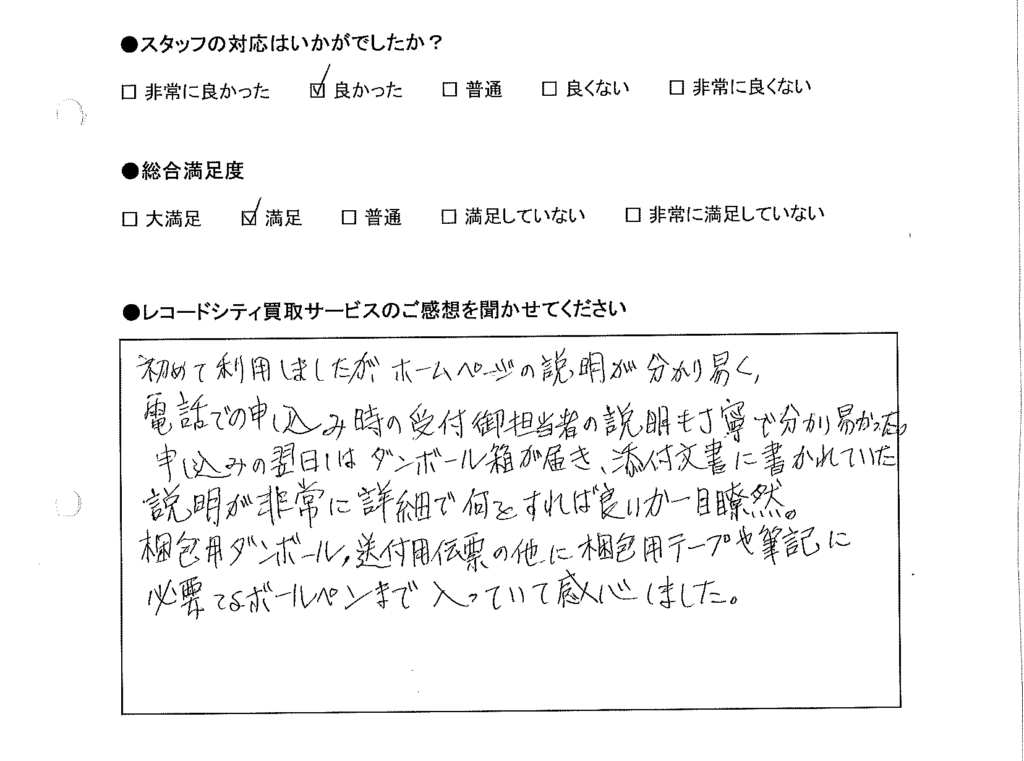 ●スタッフの対応はいかがでしたか?
□ 非常に良かった ☑ 良かった □ 普通 □ 良くない □ 非常に良くない
●総合満足度
□ 大満足 ☑ 満足 □ 普通 □ 満足していない □ 非常に満足していない
●レコードシティ買取サービスのご感想を聞かせてください
初めて利用しましたが、ホームページの説明が分かり易く、
電話での申し込み時の受付御担当者の説明も丁寧で分かり易かった。
申し込みの翌日にはダンボール箱が届き、添付文書に書かれていた
説明が非常に詳細で何をすれば良いか一目瞭然。
梱包用ダンボール、送付用伝票の他に梱包用テープや筆記に
必要なボールペンまで入っていて感心しました。